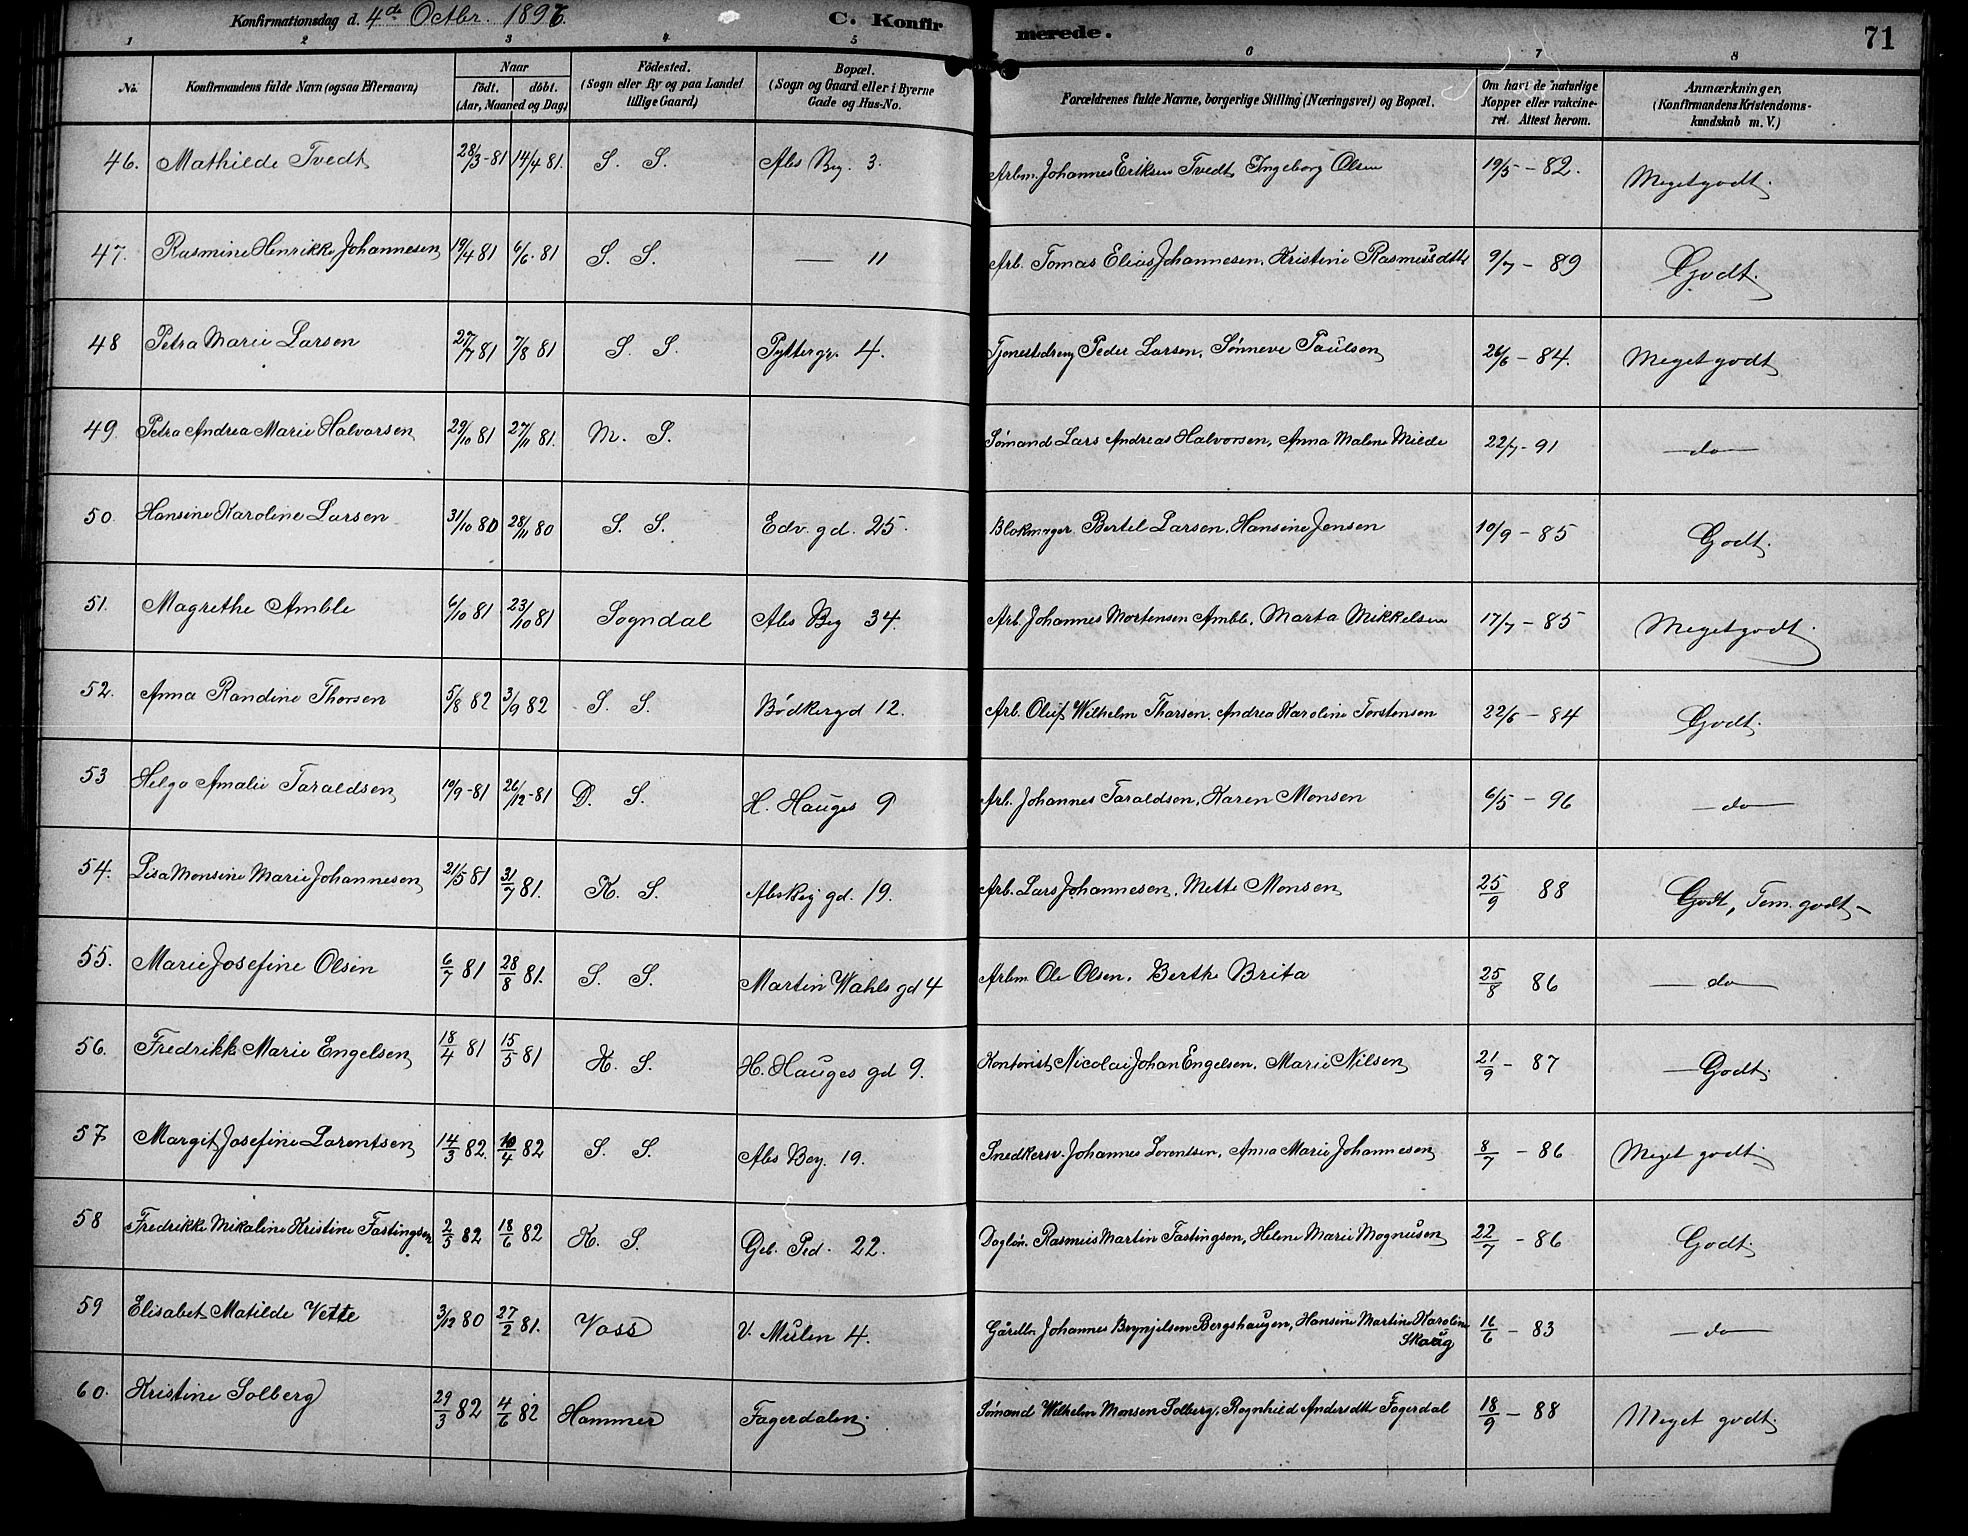 Konfirmationsdag d. 4de Octbr. 1896. C. Konfirmerede. 71
1 2 3 4 5 6 7 8
No. Konfirmandens fulde Navn (ogsaa Efternavn) Naar født. døbt. (Aar, Maaned og Dag) Fødested. (Sogn eller By og paa Landet tillige Gaard) Bopæl. (Sogn og Gaard eller i Byerne Gade og Hus-No. Forældrenes fulde Navne, borgerlige Stilling (Næringsvei) og Bopæl. Om havt de naturlige Kopper eller vakcineret. Attest herom. Anmærkninger. (Konfirmandens Kristendomskundskab m. V.)
46. Mathilde Tvedt 28/3-81 14/4 81. S. S. Abs Bey. 3. Arbm. Johannes Eriksen Tvedt, Ingeborg Olsen 19/5 - 82. Meget godt.
47. Rasmine Henrikke Johannesen 19/4 81 6/6. 81 S. S. — 11 Arb. Tomas Elias Johannesen, Kristine Rasmusdtr 9/7 - 89 Godt.
48 Petra Marie Larsen 27/7 81 7/8 81 S. S. Pyttergr. 4. Tjenestdreng Peder Larsen, Sønneve Paulsen 26/6 - 84. Meget godt
49. Petra Andrea Marie Halvorsen 29/10 81 27/11 81. M. S. Sømand Lars Andreas Halvorsen, Anna Malene Milde 22/7 - 91 — do —
50. Hansine Karoline Larsen 31/10 80 28/11 80 S. S. Edv. gd. 25. Blokmager Bertel Larsen, Hansine Jensen 10/9 - 85 Godt.
51. Magrethe Amble 6/10 81 23/10 81 Sogndal Abs Bey 34. Arb. Johannes Mortensen Amble, Marta Mikkelsen 17/7 - 85 Meget godt.
52. Anna Randine Thorsen 5/8 82 3/9 82 S. S. Bødkergd 12. Arb. Oluf Wilhelm Thorsen, Andrea Karoline Torstensen 22/6 - 84 Godt.
53 Helga Amalie Taraldsen 10/9-81 26/12-81 D. S. H. Hauges 9 Arb. Johannes Taraldsen, Karen Monsen 6/5 - 96 — do —
54. Lisa Monsine Marie Johannesen 21/5 81 31/7 81. K. S. Abs Bey gd. 19. Arb. Lars Johannesen, Mette Monsen 25/9 88 Godt, Tem. godt -
55. Marie Josefine Olsen 6/7 81 28/8 81. S. S. Martin Wahls gd 4 Arbm. Ole Olsen, Berthe Brita 25/8 86 — do —
56. Fredrikke Marie Engelsen 18/4 81 15/5 81 K. S. H. Hauges gd 9. Kontorist Nicolai Johan Engelsen, Marie Nilsen 21/9 - 87 — Godt.
57 Margit Josefine Lorentsen 14/3 82. 10/4 82 S. S. Abs Bey. 19. Snedkersv. Johannes Lorentsen, Anna Marie Johannesen 8/7 - 86 Meget godt.
58 Fredrikke Mikaline Kristine Fastingsen 2/5 82 18/6 82 K. S. Geb. Ped. 22. Dagløn. Rasmus Martin Fastingsen, Helene Marie Mognusen 22/7 - 86 Godt.
59 Elisabet Matilde Vette 3/12 80 27/2 81. Voss V. Mulen 4. Johannes Brynjelsen Bergshaugen, Hansine Martine Karoline
Skaug 16/6 - 83 — do —
60. Kristine Solberg 29/3 82 4/6 82 Hammer Fagerdalen. Sømand Wilhelm Monsen Solberg, Ragnhild Andersdtr Fagerdal 18/9 - 88 Meget godt.